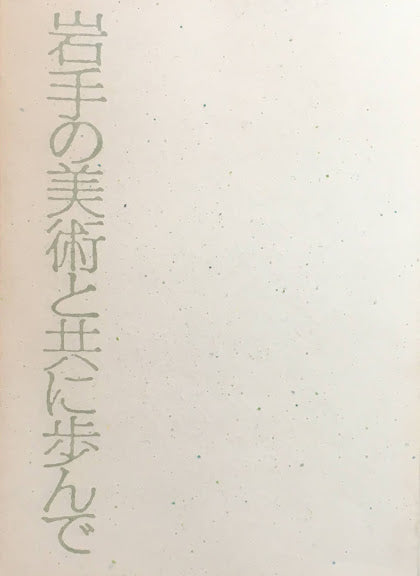 岩手の美術と共に歩んで